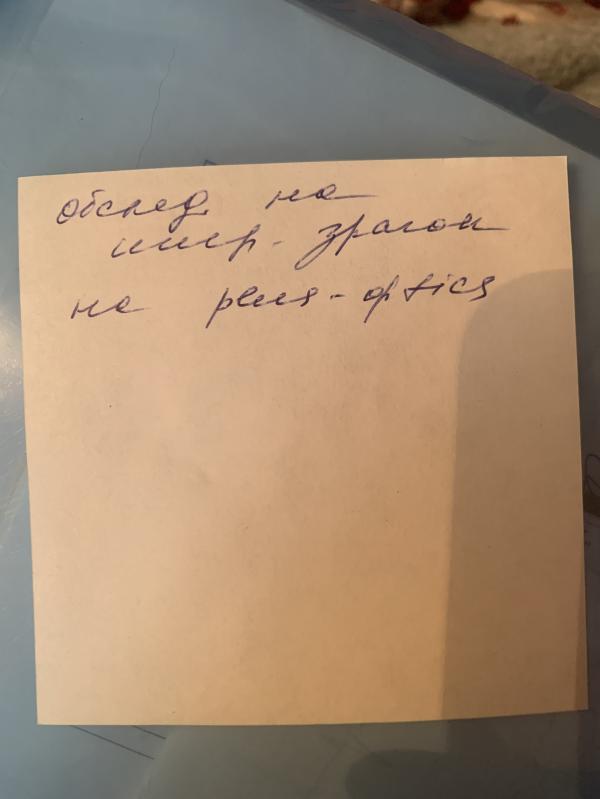 обслед. на
шир- зрачок
на plus-optics